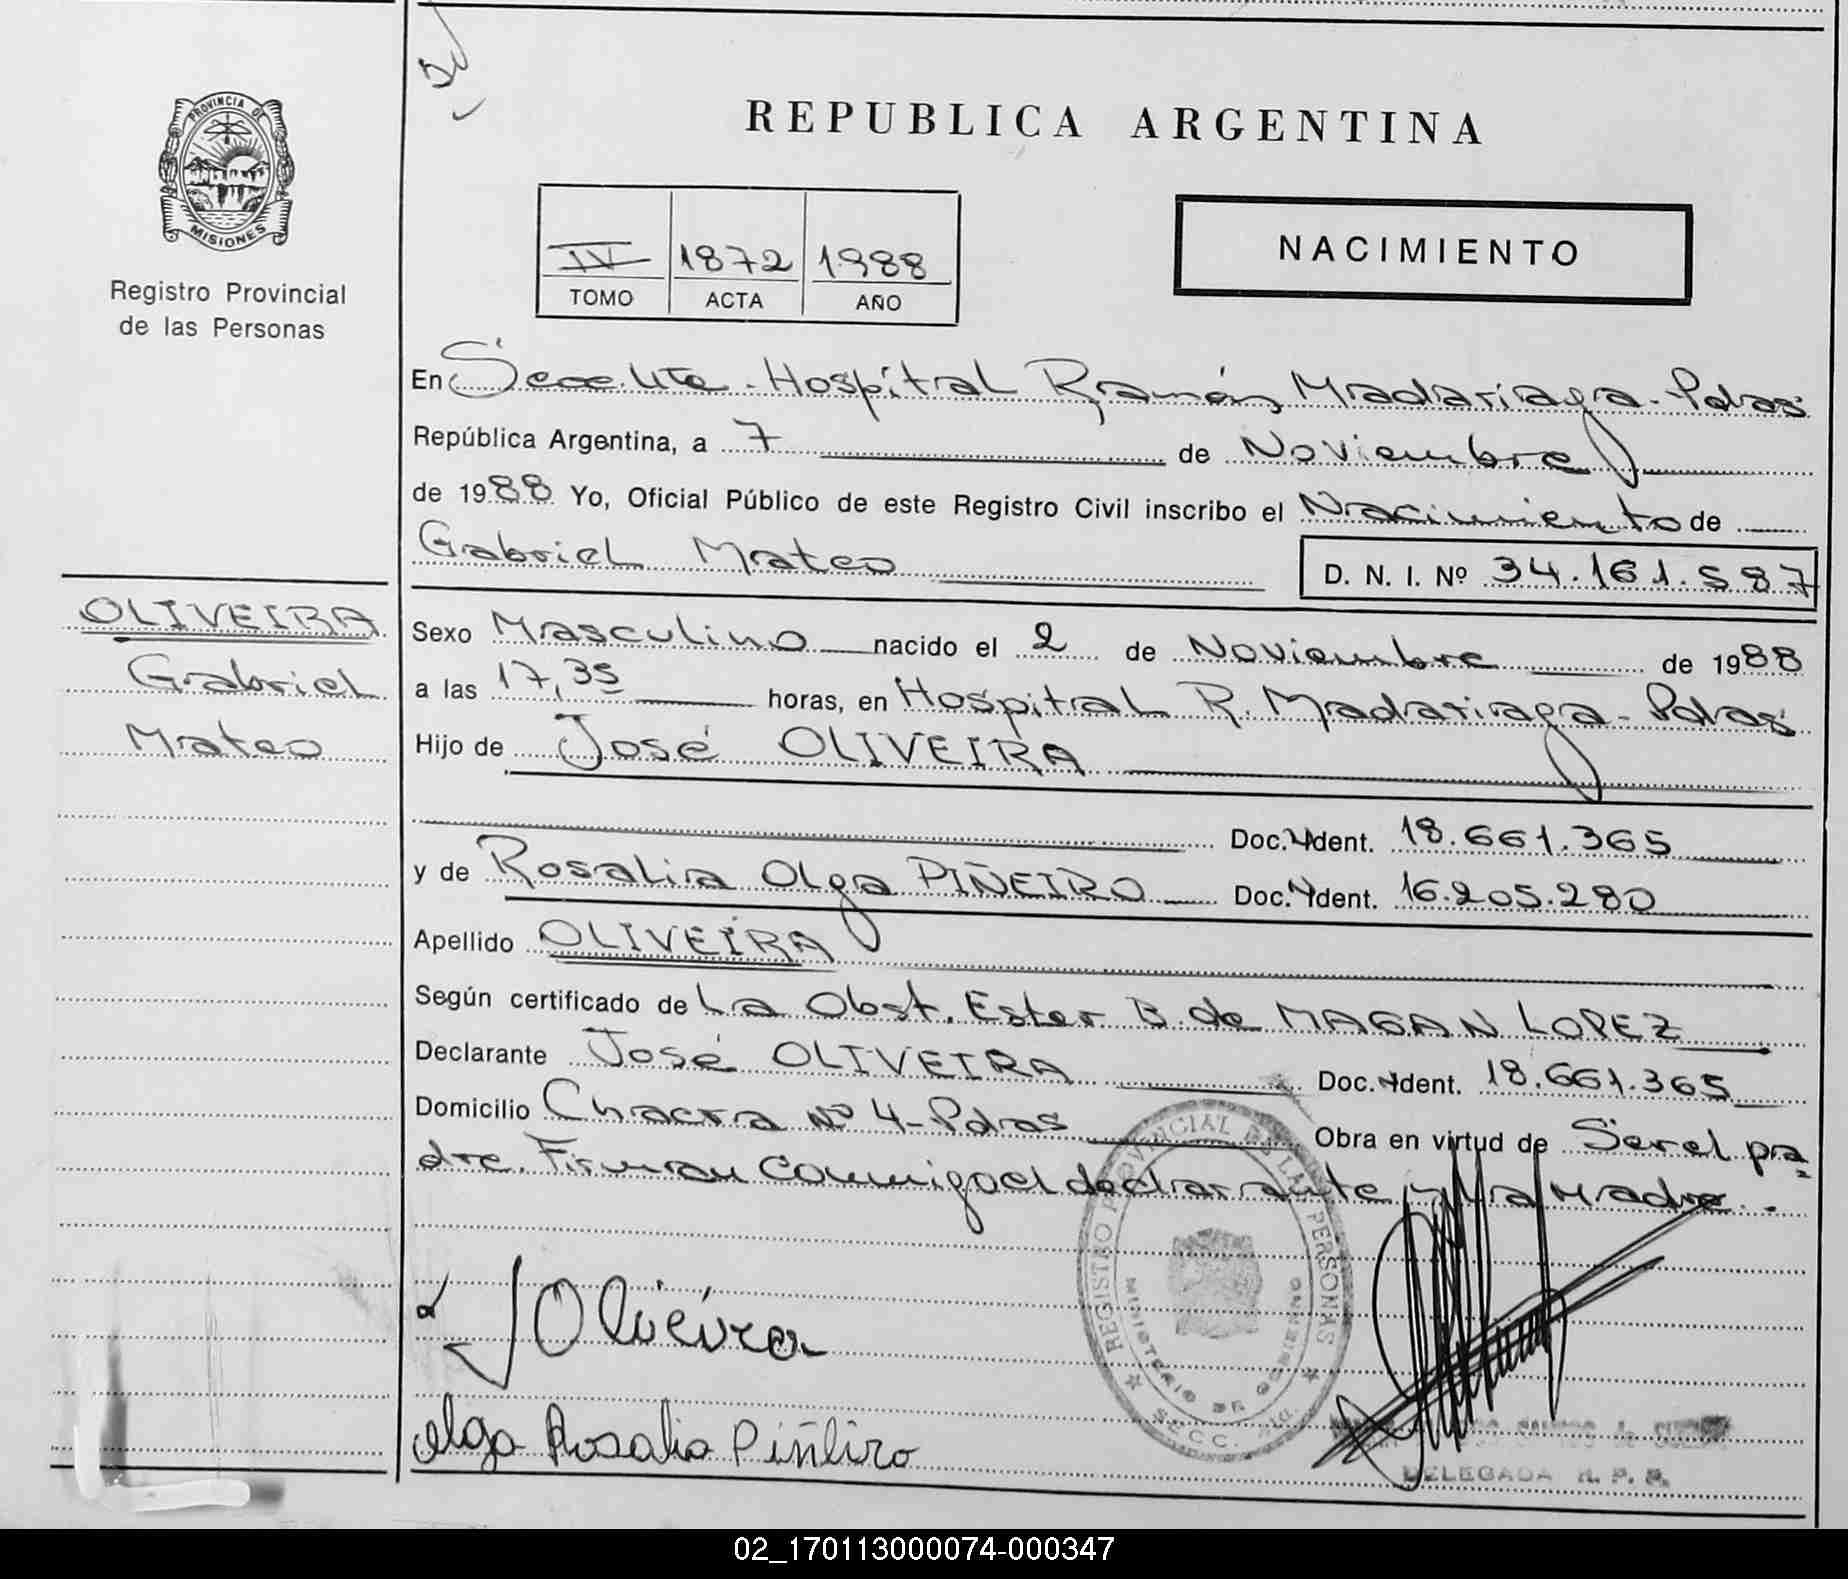 REPUBLICA ARGENTINA
PROVINCIA DE
MISIONES
Registro Provincial
de las Personas
IV 1872 1988
TOMO ACTA AÑO
NACIMIENTO
En Secc. Hospital Ramón Madariaga - Pdas
República Argentina, a 7 de Noviembre
de 1988 Yo, Oficial Público de este Registro Civil inscribo el Nacimiento de
Gabriel Mateo D. N. I. Nº 34.161.587
OLIVEIRA
Gabriel
Mateo
Sexo Masculino nacido el 2 de Noviembre de 1988
a las 17,35 horas, en Hospital R. Madariaga - Pdas
Hijo de José OLIVEIRA
Doc. Ident. 18.661.365
y de Rosalia Olga PIÑEIRO Doc. Ident. 16.205.280
Apellido OLIVEIRA
Según certificado de La Obst. Ester B. de MAGAN LOPEZ
Declarante José OLIVEIRA Doc. Ident. 18.661.365
Domicilio Chacra Nº 4 - Pdas Obra en virtud de Ser el pa=
dre. Firman conmigo el declarante y la Madre.
REGISTRO PROVINCIAL DE LAS PERSONAS
MINISTERIO DE GOBIERNO
SECC.
J Oliveira
Olga Rosalia Piñeiro
DELEGADA R. P. P.
02_170113000074-000347